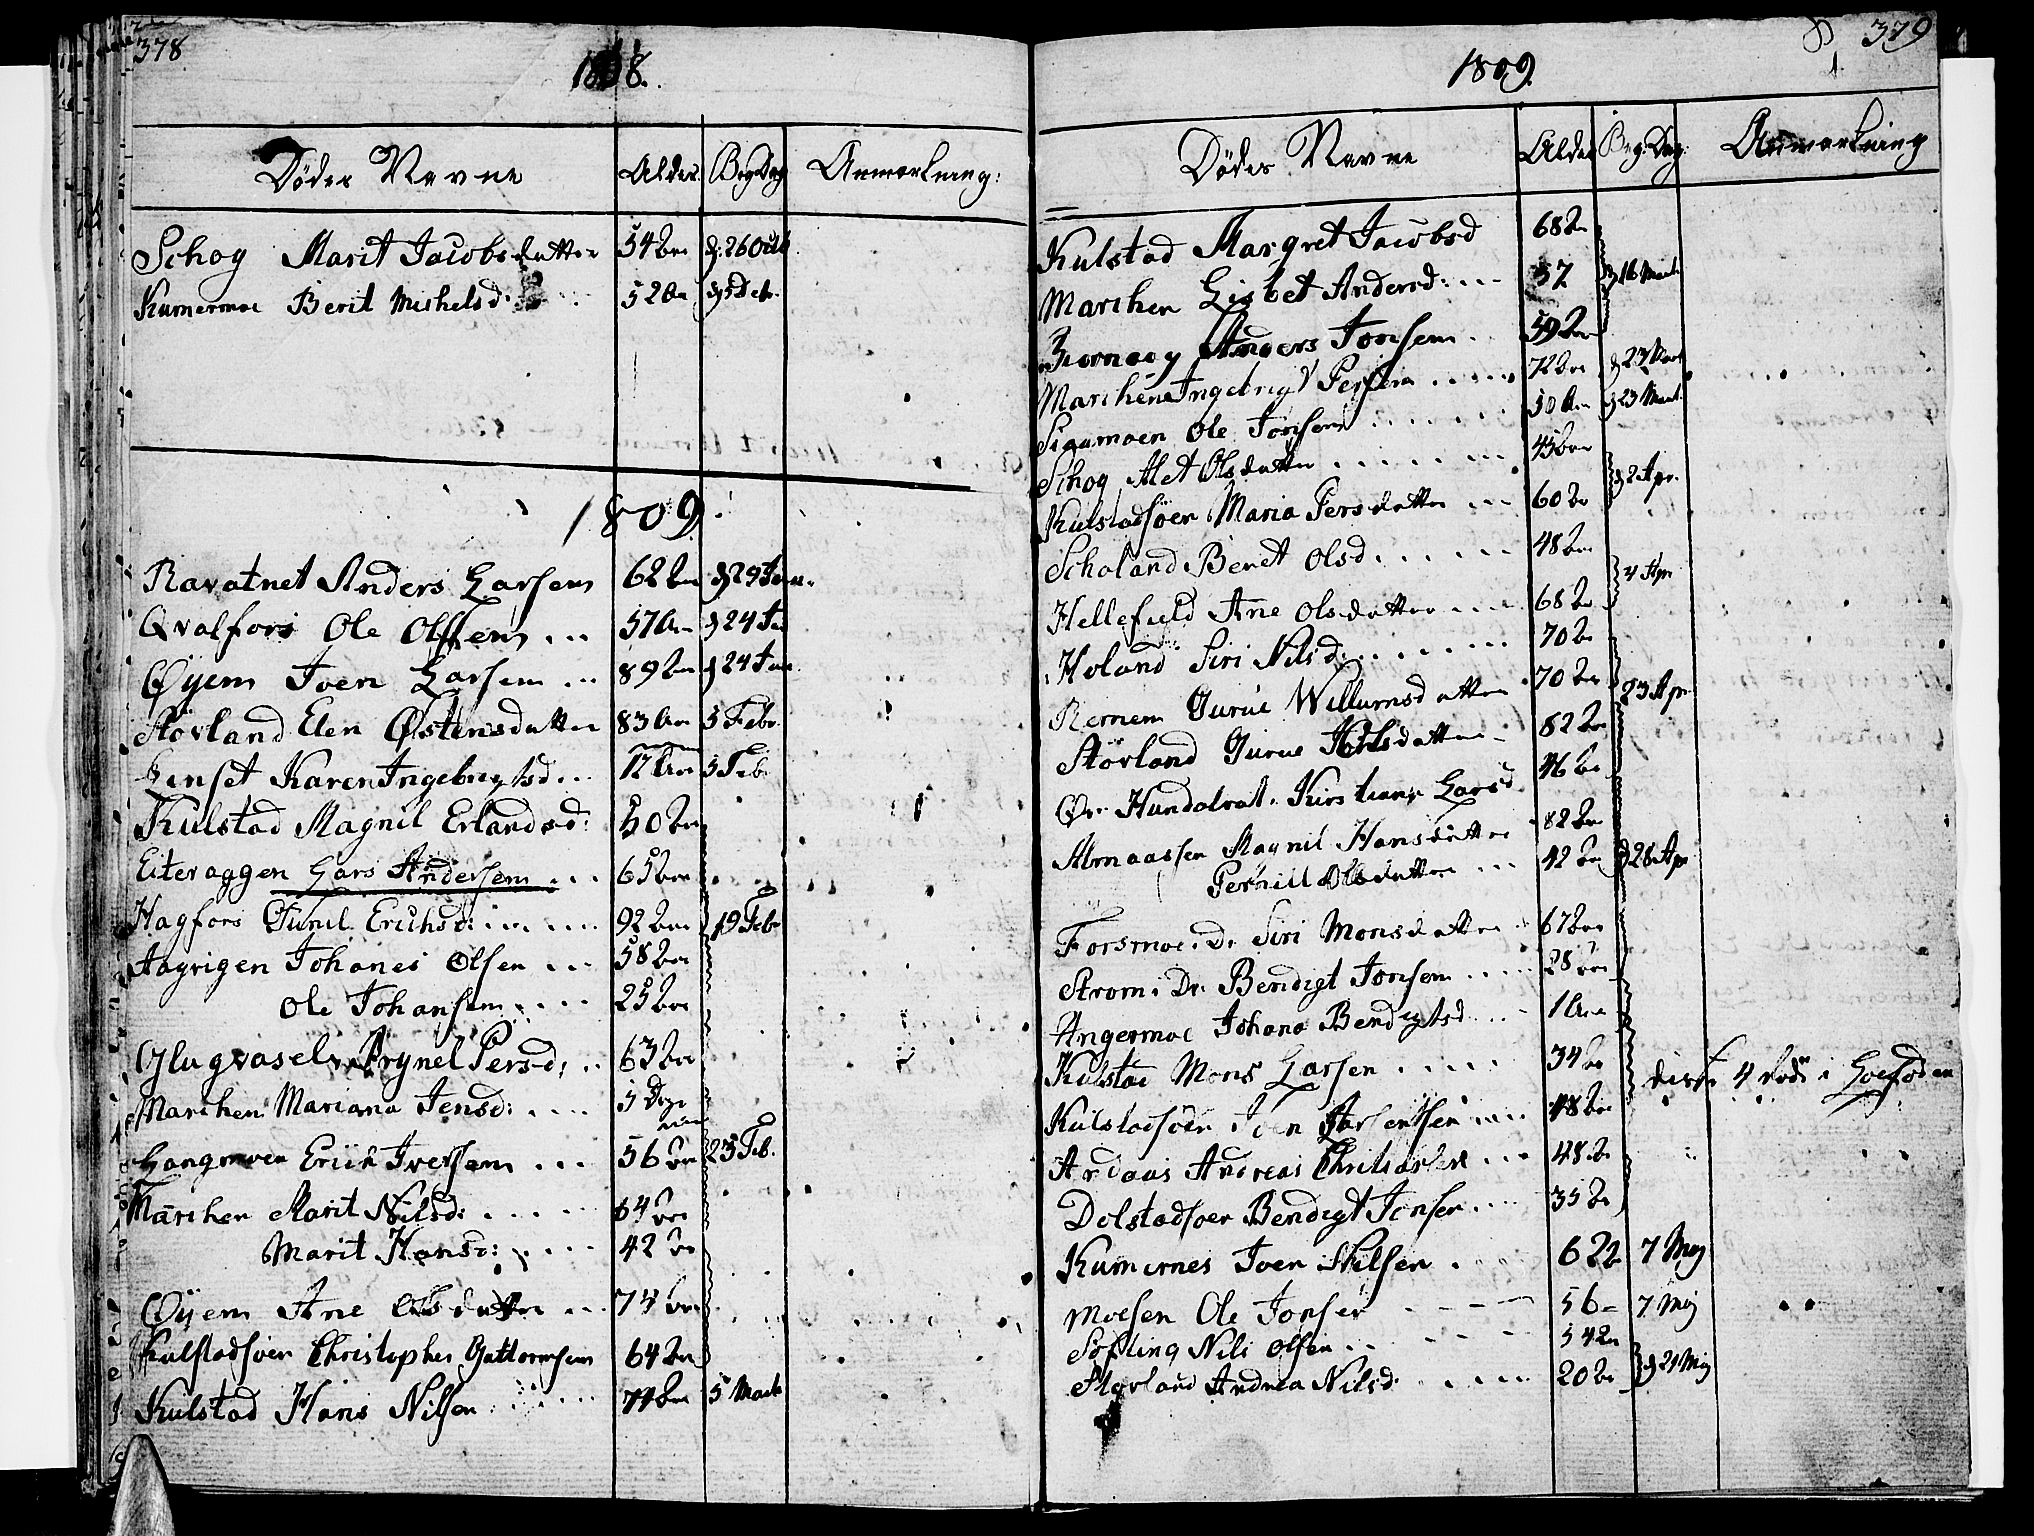 378
1808.
Døde Navne Alder BegDag Anmerkning:
Schog Marit Jacobsdatter 54 Aar d. 26 Octb
Kumermoe Berit Michelsd: 52 Aar d 5 Deb.
1809
Ravatnet Anders Larsen 62 Aar d 29 Jan.
Qvalfors Ole Olsen ... 57 Aar d 24 Jan
Øyem Iven Larsen ... 89 Aar d 24 Jan
Störland Elen Østensdatter 83 Aar 5 Febr.
Karen Ingebrigtsd... 72 Aar 5 Feb.
Kulstad Magnil Erlandsd: 50 Aar
Eiteraggen Lars Andersen ... 65 Aar
Hagfors Gunil Erichsd: 92 Aar 19 Feb
Johanes Olsen ... 58 Aar
Ole Johansen .... 25 Aar
Persd: .. 63 Aar
Marchen Mariana Jensd: .... 5 Dage
Langmoen Erich Iversen ... 56 Aar 25 Feb.
Marchen Marit Nilsd: ..... 64 Aar
Marit Hansd: .... 42 Aar
Øyem Ane Olsdatter .. 74 Aar
Kulstadsöen Christopher Guttormsen 64 Aar
Kulstad Hans Nilsen ..... 74 Aar 5 Mart
379
1809.
Døde Navne Alder Beg: Dag: Anmerkning
Kulstad Margret Jacobsd 68 Aar
Marchen Lisbet Andersd: ... 57 d 16 Mart.
Anders Jonsen . 59 Aar
Marchen Ingebrigt Persen ..... 72 Aar d 23 Mart
Ole Jonsen ..... 50 Aar d 23 Mart.
Schog Alet Olsdatter ....... 45 Aar
Kulstadsöen Maria Persdatter ... 60 Aar d 2 Apr.
Scholand Beret Olsd...... 48 Aar
Hellefield Ane Olsdatter .... 68 Aar 4 Apr
Holand Siri Nilsd....... 70 Aar
Remem Gurue Willumsdatter . 70 Aar 23 Apr
Störland Gurue Nilsdatter 82 Aar
Kirstiane Larsd. 46 Aar
Almaassen Magnil Hansdatter 82 Aar
Pernill Olsdatter ... 42 Aar d 28 Apr
Forsmoe: Dr Siri Monsdatter . 67 Aar
Strom: Dr. Bendigt Jonsen ..... 28 Aar
Angermoe Johana Bendigtsd ... 1 Aar
Kulstad Mons Larsen ..... 34 Aar
disse 4 døde i Lofoden
Kulstadsöen Iven .... 48 Aar
Ardaas Andreas Christiansen ... 48 Aar
Dolstadsöen Bendigt Jonsen .... 35 Aar
Kumernes Iver Nilsen . 62 Aar 7 Maj
Moesen Ole Jonsen - - - 56 - 7 Maj
Söfting Nils Olsen .. 54 Aar
Störland Andrea Nilsd. ..... 20 Aar d 21 Maj